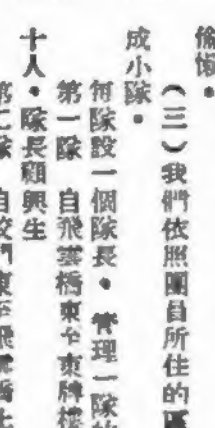 愉悅。
(三)我們依照團員所住的區
成小隊。
每隊設一個隊長。管理一隊的
第一隊 自飛雲橋東至東牌樓
十人。隊長顧興生
第二隊 自校門東至飛雲橋止